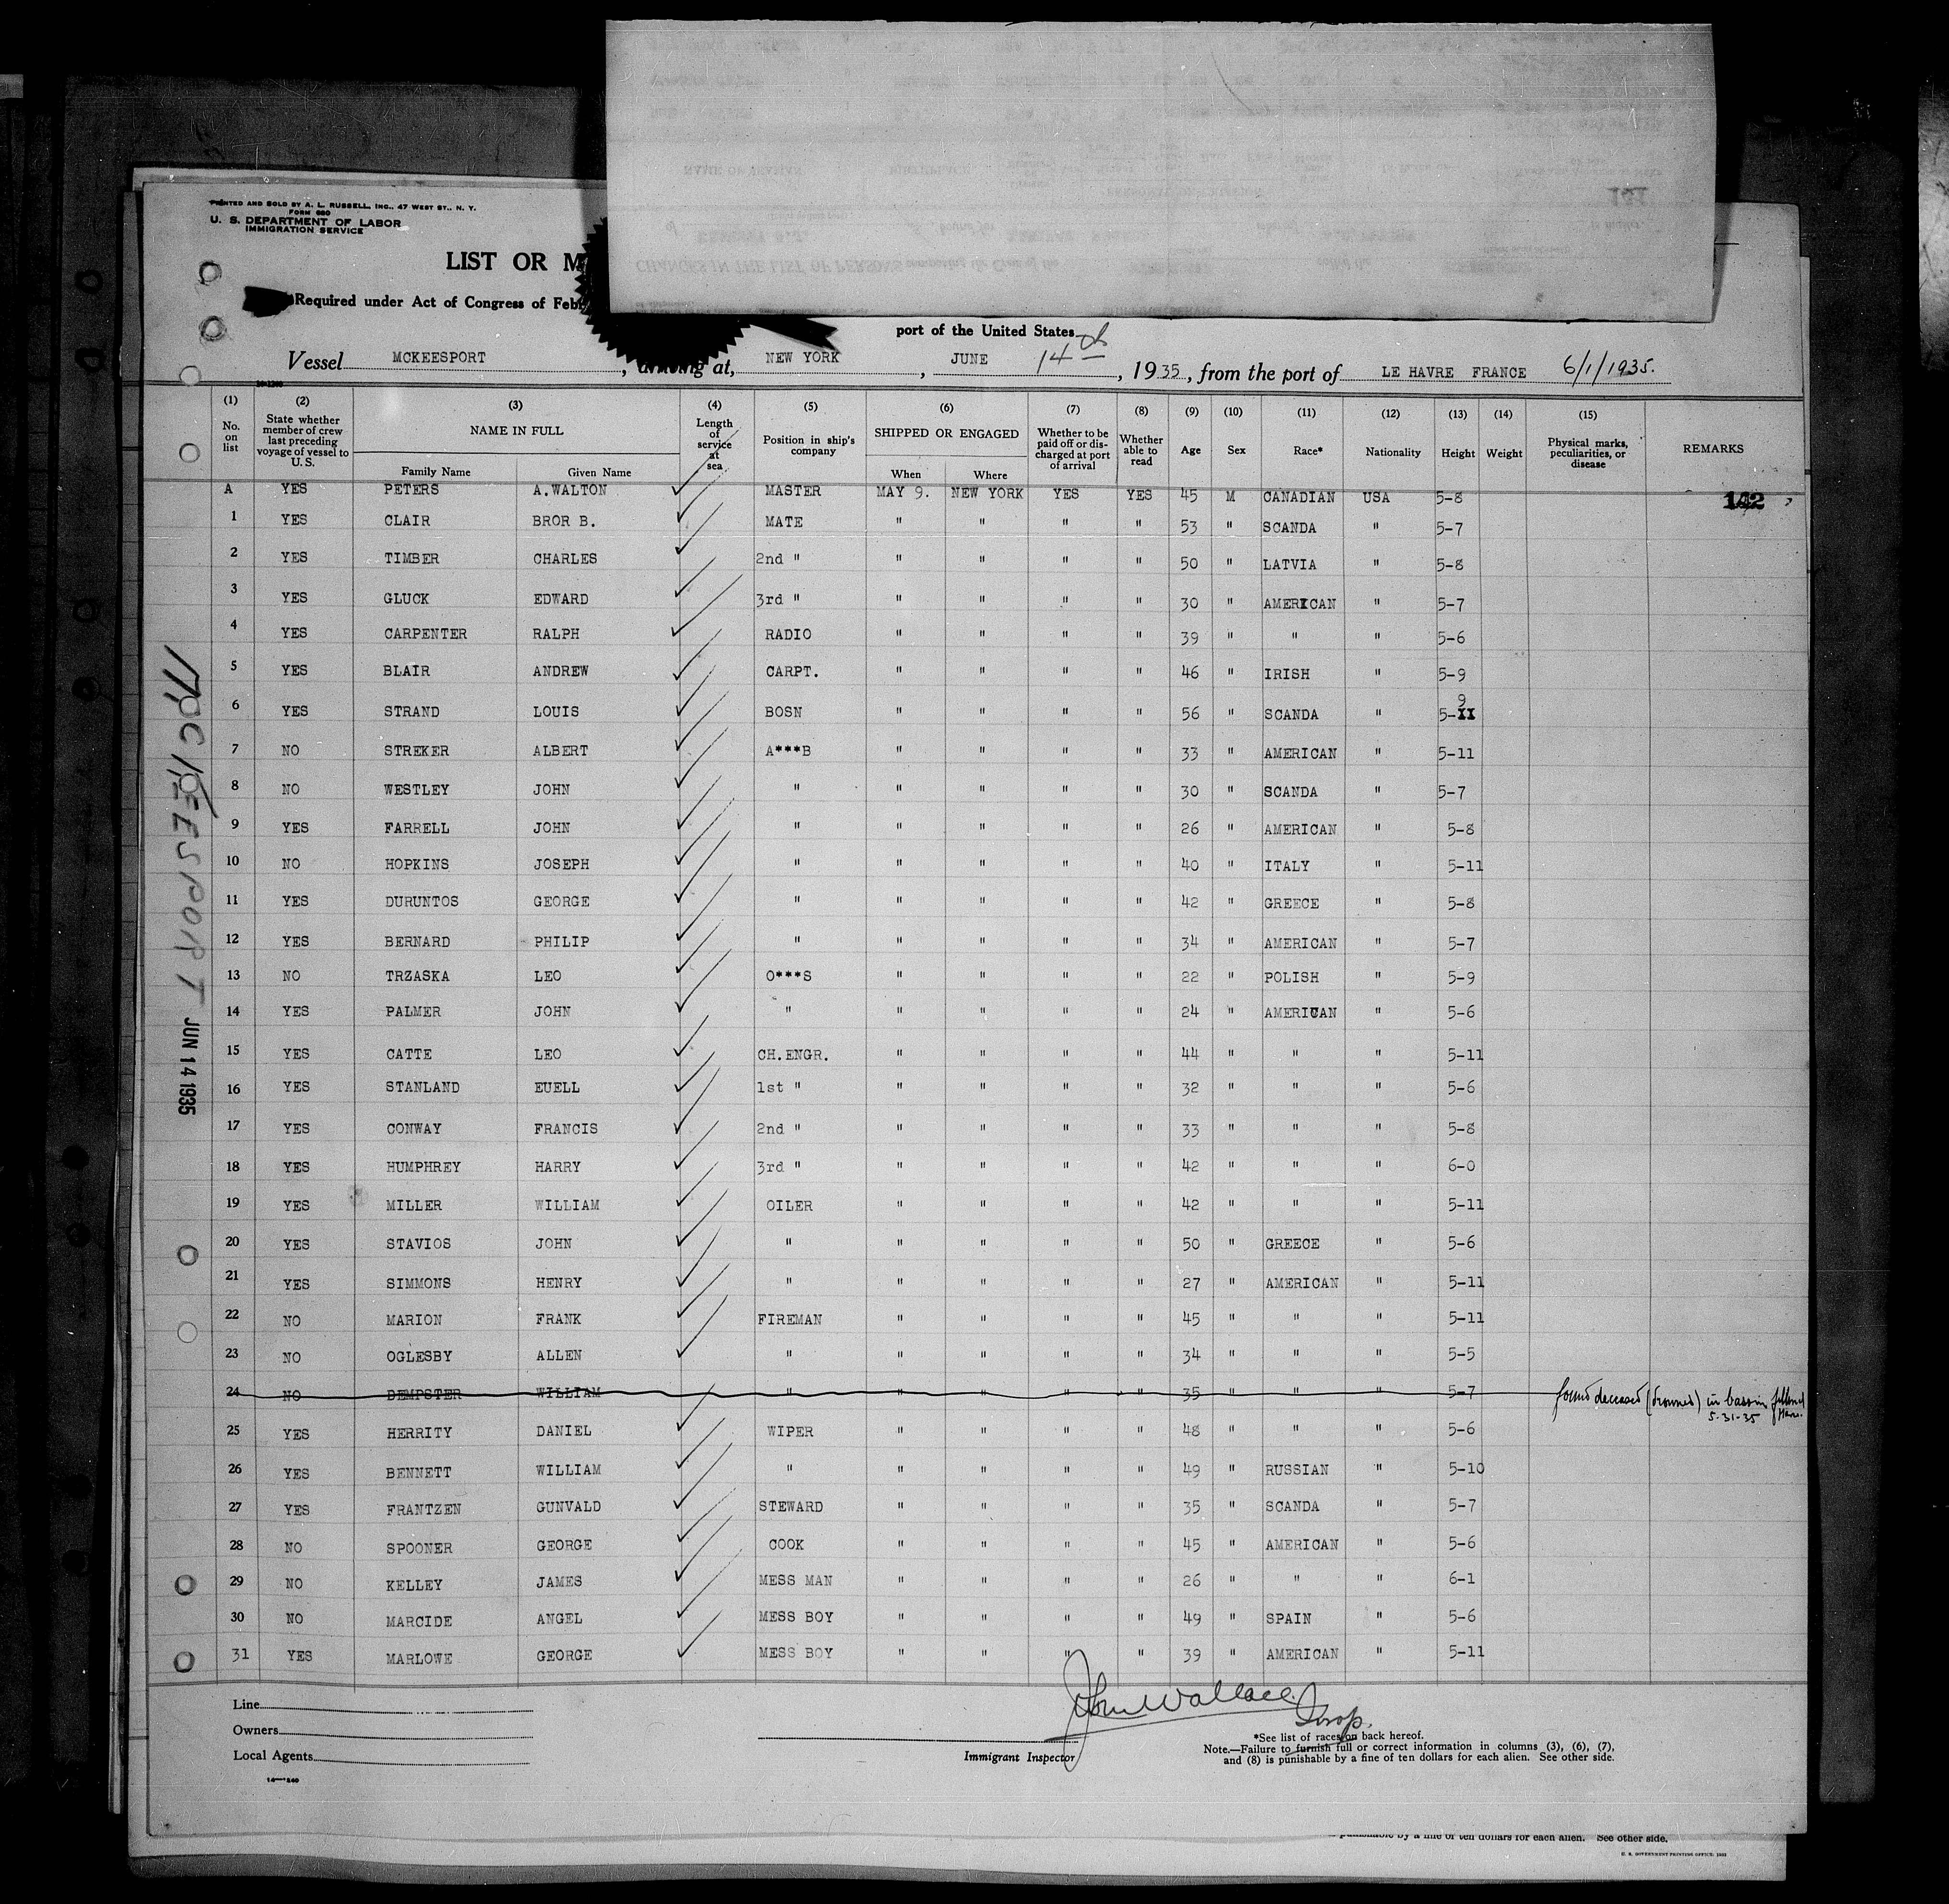 PRINTED AND SOLD BY A. L. RUSSELL, INC., 47 WEST ST., N. Y.
FORM 680
U. S. DEPARTMENT OF LABOR
IMMIGRATION SERVICE
LIST OR M
Required under Act of Congress of Feb
port of the United States
Vessel MCKEESPORT, arriving at, NEW YORK, JUNE 14th, 1935, from the port of LE HAVRE FRANCE 6/1/1935.
(1) No. on list (2) State whether member of crew last preceding voyage of vessel to U. S. (3) NAME IN FULL Family Name Given Name (4) Length of service at sea (5) Position in ship's company (6) SHIPPED OR ENGAGED When Where (7) Whether to be paid off or discharged at port of arrival (8) Whether able to read (9) Age (10) Sex (11) Race* (12) Nationality (13) Height (14) Weight (15) Physical marks, peculiarities, or disease REMARKS
A YES PETERS A.WALTON MASTER MAY 9. NEW YORK YES YES 45 M CANADIAN USA 5-8
1 YES CLAIR BROR B. MATE " " " " 53 " SCANDA " 5-7
2 YES TIMBER CHARLES 2nd " " " " " 50 " LATVIA " 5-8
3 YES GLUCK EDWARD 3rd " " " " " 30 " AMERICAN " 5-7
4 YES CARPENTER RALPH RADIO " " " " 39 " " " 5-6
5 YES BLAIR ANDREW CARPT. " " " " 46 " IRISH " 5-9
6 YES STRAND LOUIS BOSN " " " " 56 " SCANDA " 5-II 9
7 NO STREKER ALBERT A***B " " " " 33 " AMERICAN " 5-11
8 NO WESTLEY JOHN " " " " " 30 " SCANDA " 5-7
9 YES FARRELL JOHN " " " " " 26 " AMERICAN " 5-8
10 NO HOPKINS JOSEPH " " " " " 40 " ITALY " 5-11
11 YES DURUNTOS GEORGE " " " " " 42 " GREECE " 5-8
12 YES BERNARD PHILIP " " " " " 34 " AMERICAN " 5-7
13 NO TRZASKA LEO O***S " " " " 22 " POLISH " 5-9
14 YES PALMER JOHN " " " " " 24 " AMERICAN " 5-6
15 YES CATTE LEO CH.ENGR. " " " " 44 " " " 5-11
16 YES STANLAND EUELL 1st " " " " " 32 " " " 5-6
17 YES CONWAY FRANCIS 2nd " " " " " 33 " " " 5-8
18 YES HUMPHREY HARRY 3rd " " " " " 42 " " " 6-0
19 YES MILLER WILLIAM OILER " " " " 42 " " " 5-11
20 YES STAVIOS JOHN " " " " " 50 " GREECE " 5-6
21 YES SIMMONS HENRY " " " " " 27 " AMERICAN " 5-11
22 NO MARION FRANK FIREMAN " " " " 45 " " " 5-11
23 NO OGLESBY ALLEN " " " " " 34 " " " 5-5
24 NO DEMPSTER WILLIAM " " " " " 35 " " " 5-7 found deceased (drowned) in bassin 5-31-35 Havre.
25 YES HERRITY DANIEL WIPER " " " " 48 " " " 5-6
26 YES BENNETT WILLIAM " " " " " 49 " RUSSIAN " 5-10
27 YES FRANTZEN GUNVALD STEWARD " " " " 35 " SCANDA " 5-7
28 NO SPOONER GEORGE COOK " " " " 45 " AMERICAN " 5-6
29 NO KELLEY JAMES MESS MAN " " " " 26 " " " 6-1
30 NO MARCIDE ANGEL MESS BOY " " " " 49 " SPAIN " 5-6
31 YES MARLOWE GEORGE MESS BOY " " " " 39 " AMERICAN " 5-11
MCKEESPORT JUN 14 1935
Line
Owners
Local Agents
John Wallace
Insp.
Immigrant Inspector
*See list of races on back hereof.
Note.—Failure to furnish full or correct information in columns (3), (6), (7),
and (8) is punishable by a fine of ten dollars for each alien. See other side.
punishable by a fine of ten dollars for each alien. See other side.
U. S. GOVERNMENT PRINTING OFFICE